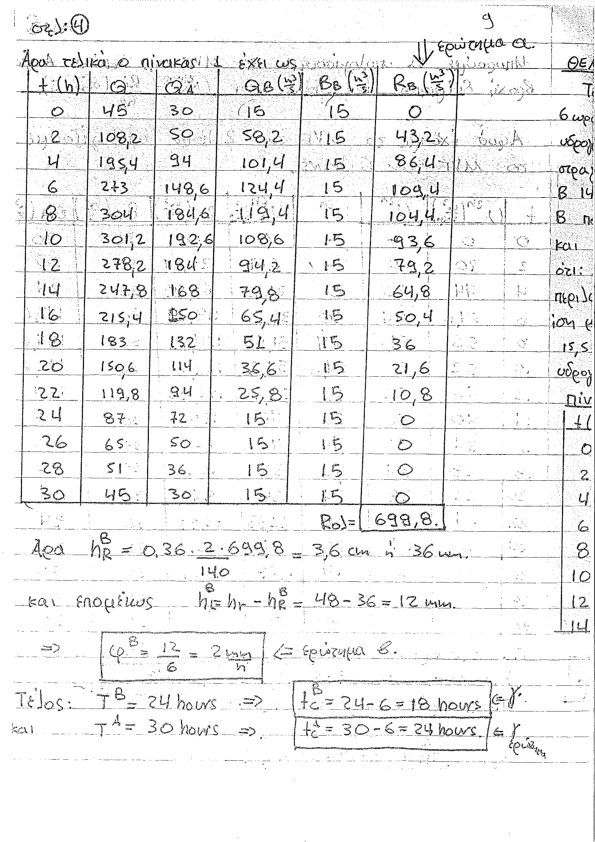 σελ: ④
9
ερώτημα α.
Άρα τελικά ο πίνακας 1 έχει ως
t (h) Q QA QB (m³/s) BB (m³/s) RB (m³/s)
0 45 30 15 15 0
2 108,2 50 58,2 15 43,2
4 195,4 94 101,4 15 86,4
6 273 148,6 124,4 15 109,4
8 304 184,6 119,4 15 104,4
10 301,2 192,6 108,6 15 93,6
12 278,2 184 94,2 15 79,2
14 247,8 168 79,8 15 64,8
16 215,4 150 65,4 15 50,4
18 183 132 51 15 36
20 150,6 114 36,6 15 21,6
22 119,8 94 25,8 15 10,8
24 87 72 15 15 0
26 65 50 15 15 0
28 51 36 15 15 0
30 45 30 15 15 0
Rολ= 699,8.
Άρα hR^B = 0.36 · 2·699,8 / 140 = 3,6 cm ή 36 mm.
και επομένως hF^B = hr - hR^B = 48 - 36 = 12 mm.
=> φ^B = 12/6 = 2 mm/h <= ερώτημα β.
Τέλος: T^B = 24 hours => tc^B = 24-6 = 18 hours <= γ.
και T^A = 30 hours => tc^A = 30-6 = 24 hours <= γ ερώτημα
ΘΕΛ
Τ
6 ωρ
υδρολ
στρα
Β 14
Β πε
και
ότι:
περιλ
ιση φ
15,5
υδρολ
Πίν
t (
0
2
4
6
8
10
12
14